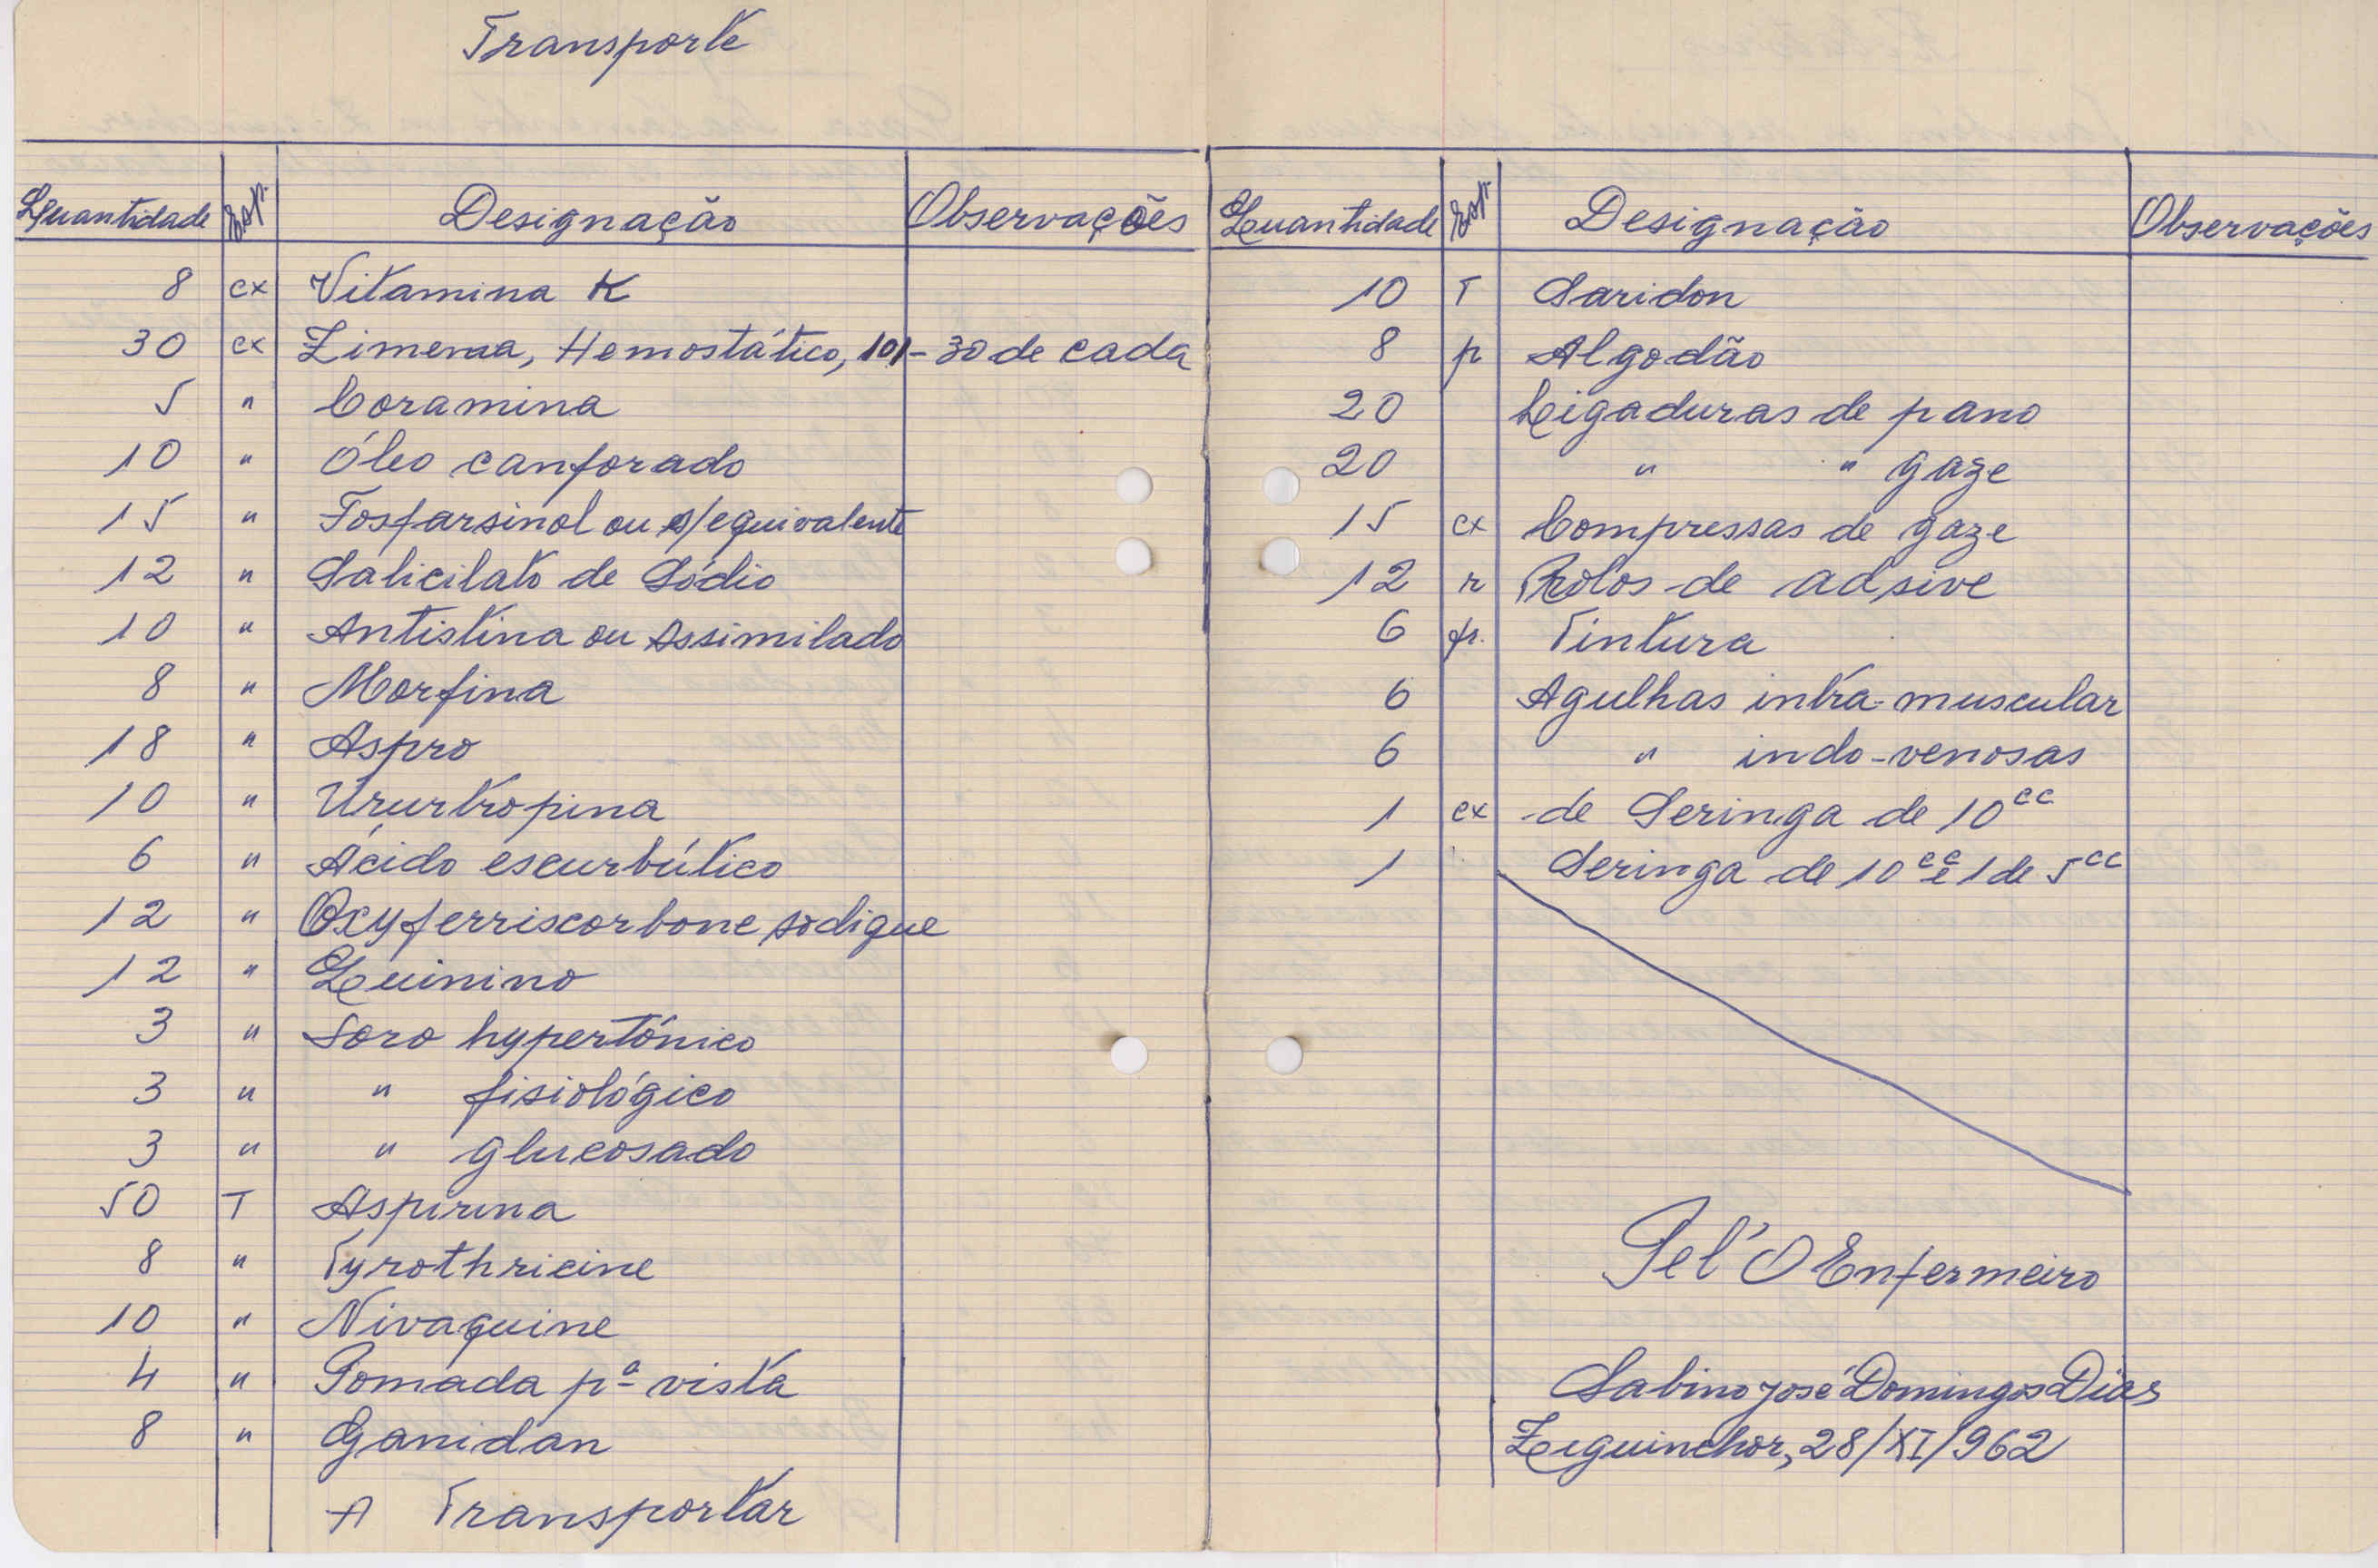 Transporte
Quantidade Esp. Designação Observações
8 cx Vitamina K
30 cx Zimema, Hemostático, 101 - 30 de cada
5 " Coramina
10 " Óleo canforado
15 " Fosfarsinol ou s/equivalente
12 " Salicilato de Sódio
10 " Antistina ou Assimilado
8 " Morfina
18 " Aspro
10 " Ururtropina
6 " Ácido escurbútico
12 " Oxyferriscorbone sodique
12 " Quinino
3 " Soro hypertónico
3 " " fisiológico
3 " " glucosado
50 T Aspirina
8 " Tyrothricine
10 " Nivaquine
4 " Pomada pª vista
8 " Ganidan
A Transportar
Quantidade Esp. Designação Observações
10 T Saridon
8 p Algodão
20 Ligaduras de pano
20 " " gaze
15 cx Compressas de gaze
12 r Rolos de adsive
6 fr. Tintura
6 Agulhas intra-muscular
6 " indo-venosas
1 cx de Seringa de 10cc
1 Seringa de 10cc e 1 de 5cc
Pel' O Enfermeiro
Sabino José Domingos Dias
Zeguinchor, 28/XI/962